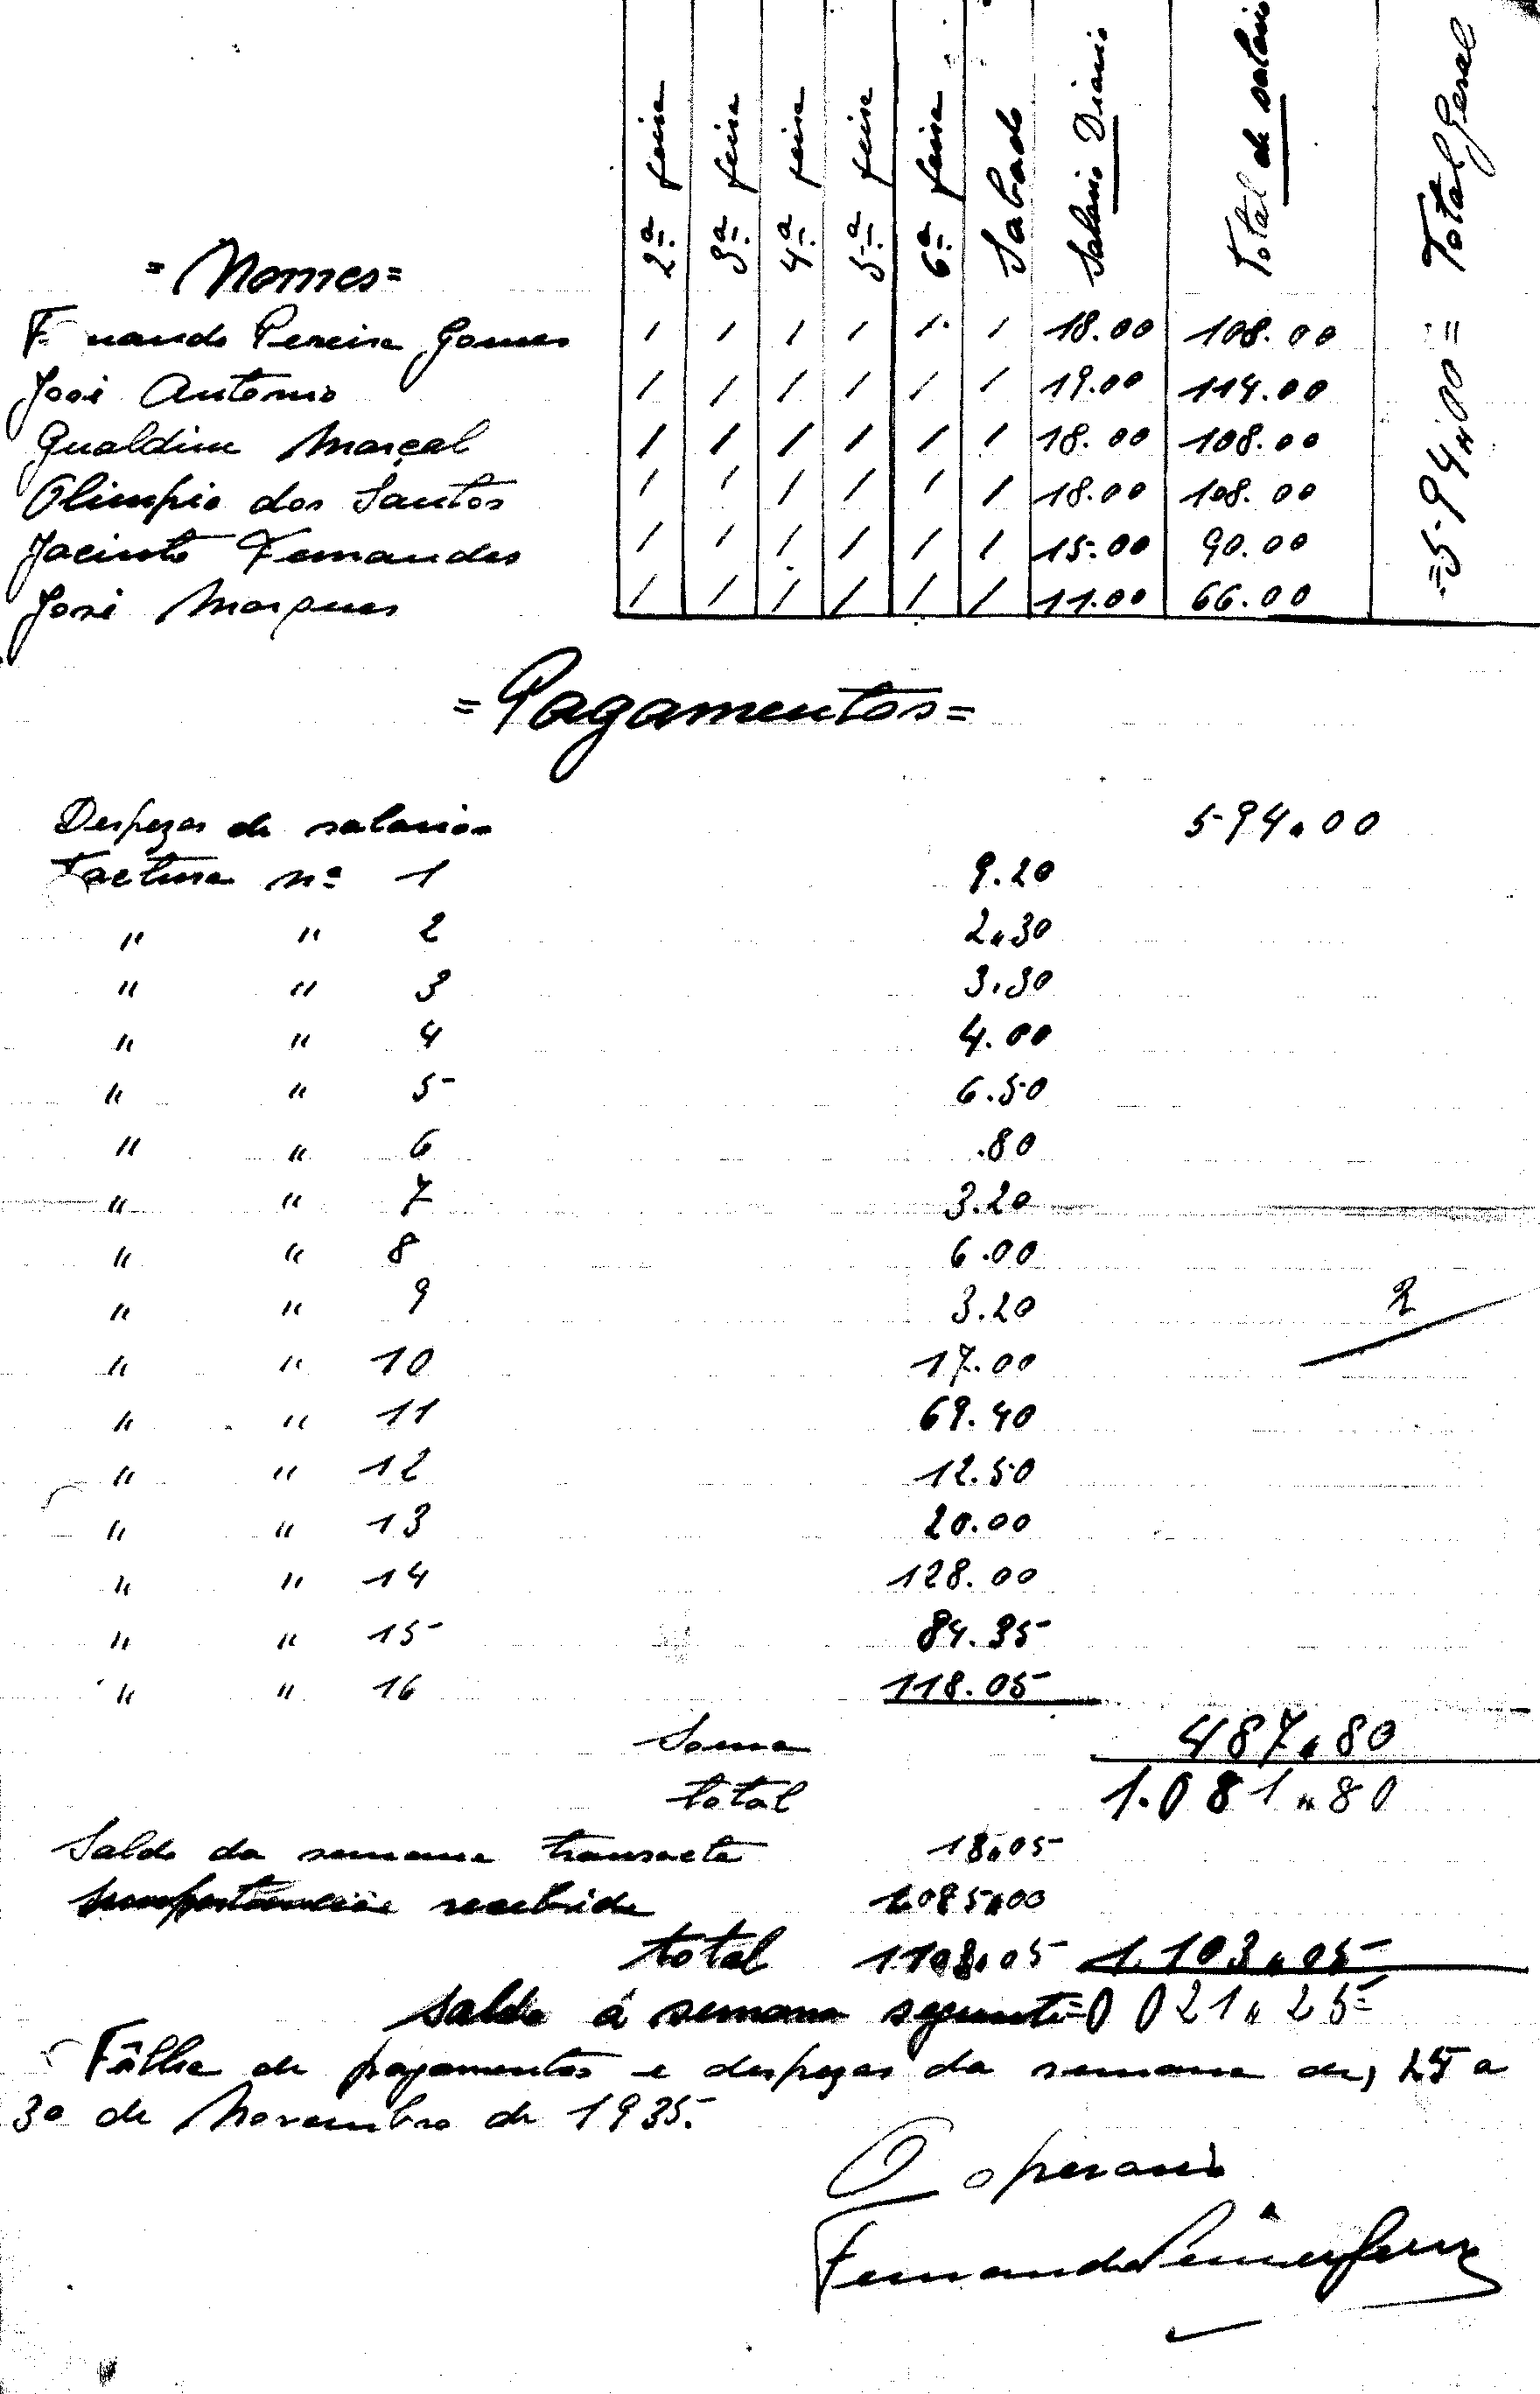 2ª feira 3ª feira 4ª feira 5ª feira 6ª feira Sabado Salario Diario Total de salario Total Geral
= Nomes =
F nando Pereira Gomes / / / / / / 18.00 108.00
José Antonio / / / / / / 19.00 114.00
Gualdim Marçal / / / / / / 18.00 108.00
Olimpio dos Santos / / / / / / 18.00 108.00
Jacinto Fernandes / / / / / / 15.00 90.00
José Marques / / / / / / 11.00 66.00
=594,,00=
= Pagamentos =
Despezas de salarios 594.00
Factura nº 1 9.20
" " 2 2,30
" " 3 3.30
" " 4 4.00
" " 5 6.50
" " 6 .80
" " 7 3.20
" " 8 6.00
" " 9 3.20
2
" " 10 17.00
" " 11 69.40
" " 12 12.50
" " 13 20.00
" " 14 128.00
" " 15 84.35
" " 16 118.05
Soma 487,80
total 1.081,,80
Saldo da semana transacta 18,05
Importancia recebida 1085,00
total 1103.05 1.103,,05
Saldo á semana seguinte=0 021,,25=
Fôlha de pagamentos e despezas da semana de, 25 a
30 de Novembro de 1935.
O operario
Fernando Pereira Gomes